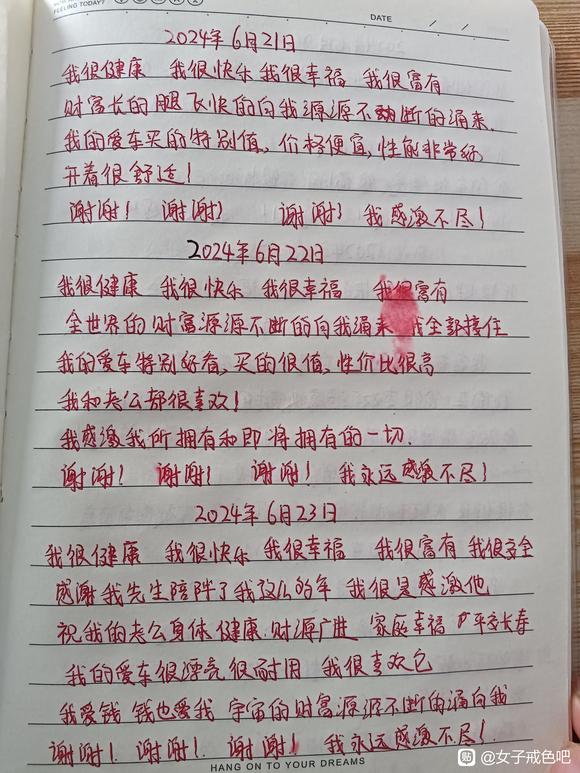 FEELING TODAY?
DATE / /
2024年6月21日
我很健康 我很快乐 我很幸福 我很富有
财富长的腿飞快的向我源源不断的涌来.
我的爱车买的特别值,价格便宜,性能非常好
开着很舒适!
谢谢! 谢谢! 谢谢! 我感激不尽!
2024年6月22日
我很健康 我很快乐 我很幸福 我很富有
全世界的财富源源不断的向我涌来 我全部接住
我的爱车特别好看,买的很值,性价比很高
我和老公都很喜欢!
我感激我所拥有和即将拥有的一切.
谢谢! 谢谢! 谢谢! 我永远感激不尽!
2024年6月23日
我很健康 我很快乐 我很幸福 我很富有 我很安全
感谢我先生陪陪了我这么多年 我很是感激他
祝我的老公身体健康.财源广进 家庭幸福 平安长寿
我的爱车很漂亮很耐用 我很喜欢它
我爱钱 钱也爱我 宇宙的财富源源不断的涌向我
谢谢! 谢谢! 谢谢! 我永远感激不尽!
HANG ON TO YOUR DREAMS
贴 @女子戒色吧